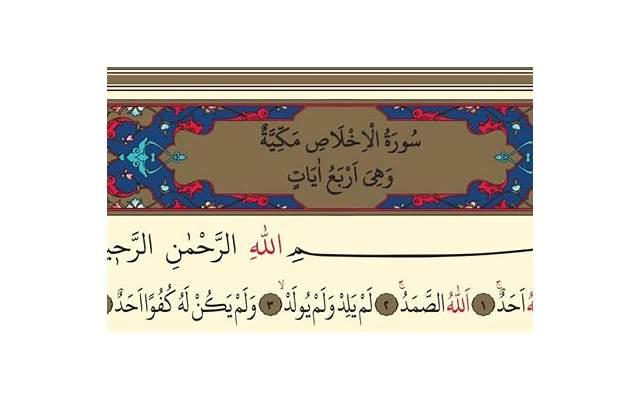 سُورَةُ الْاِخْلَاصِ مَكِّيَّةٌ
وَهِىَ اَرْبَعُ اٰيَاتٍ
ـمِ اللّٰهِ الرَّحْمٰنِ الرَّحٖيـ
ـهُ اَحَدٌۚ ﴿١﴾ اَللّٰهُ الصَّمَدُۚ ﴿٢﴾ لَمْ يَلِدْ وَلَمْ يُولَدْۙ ﴿٣﴾ وَلَمْ يَكُنْ لَهُ كُفُوًا اَحَدٌ